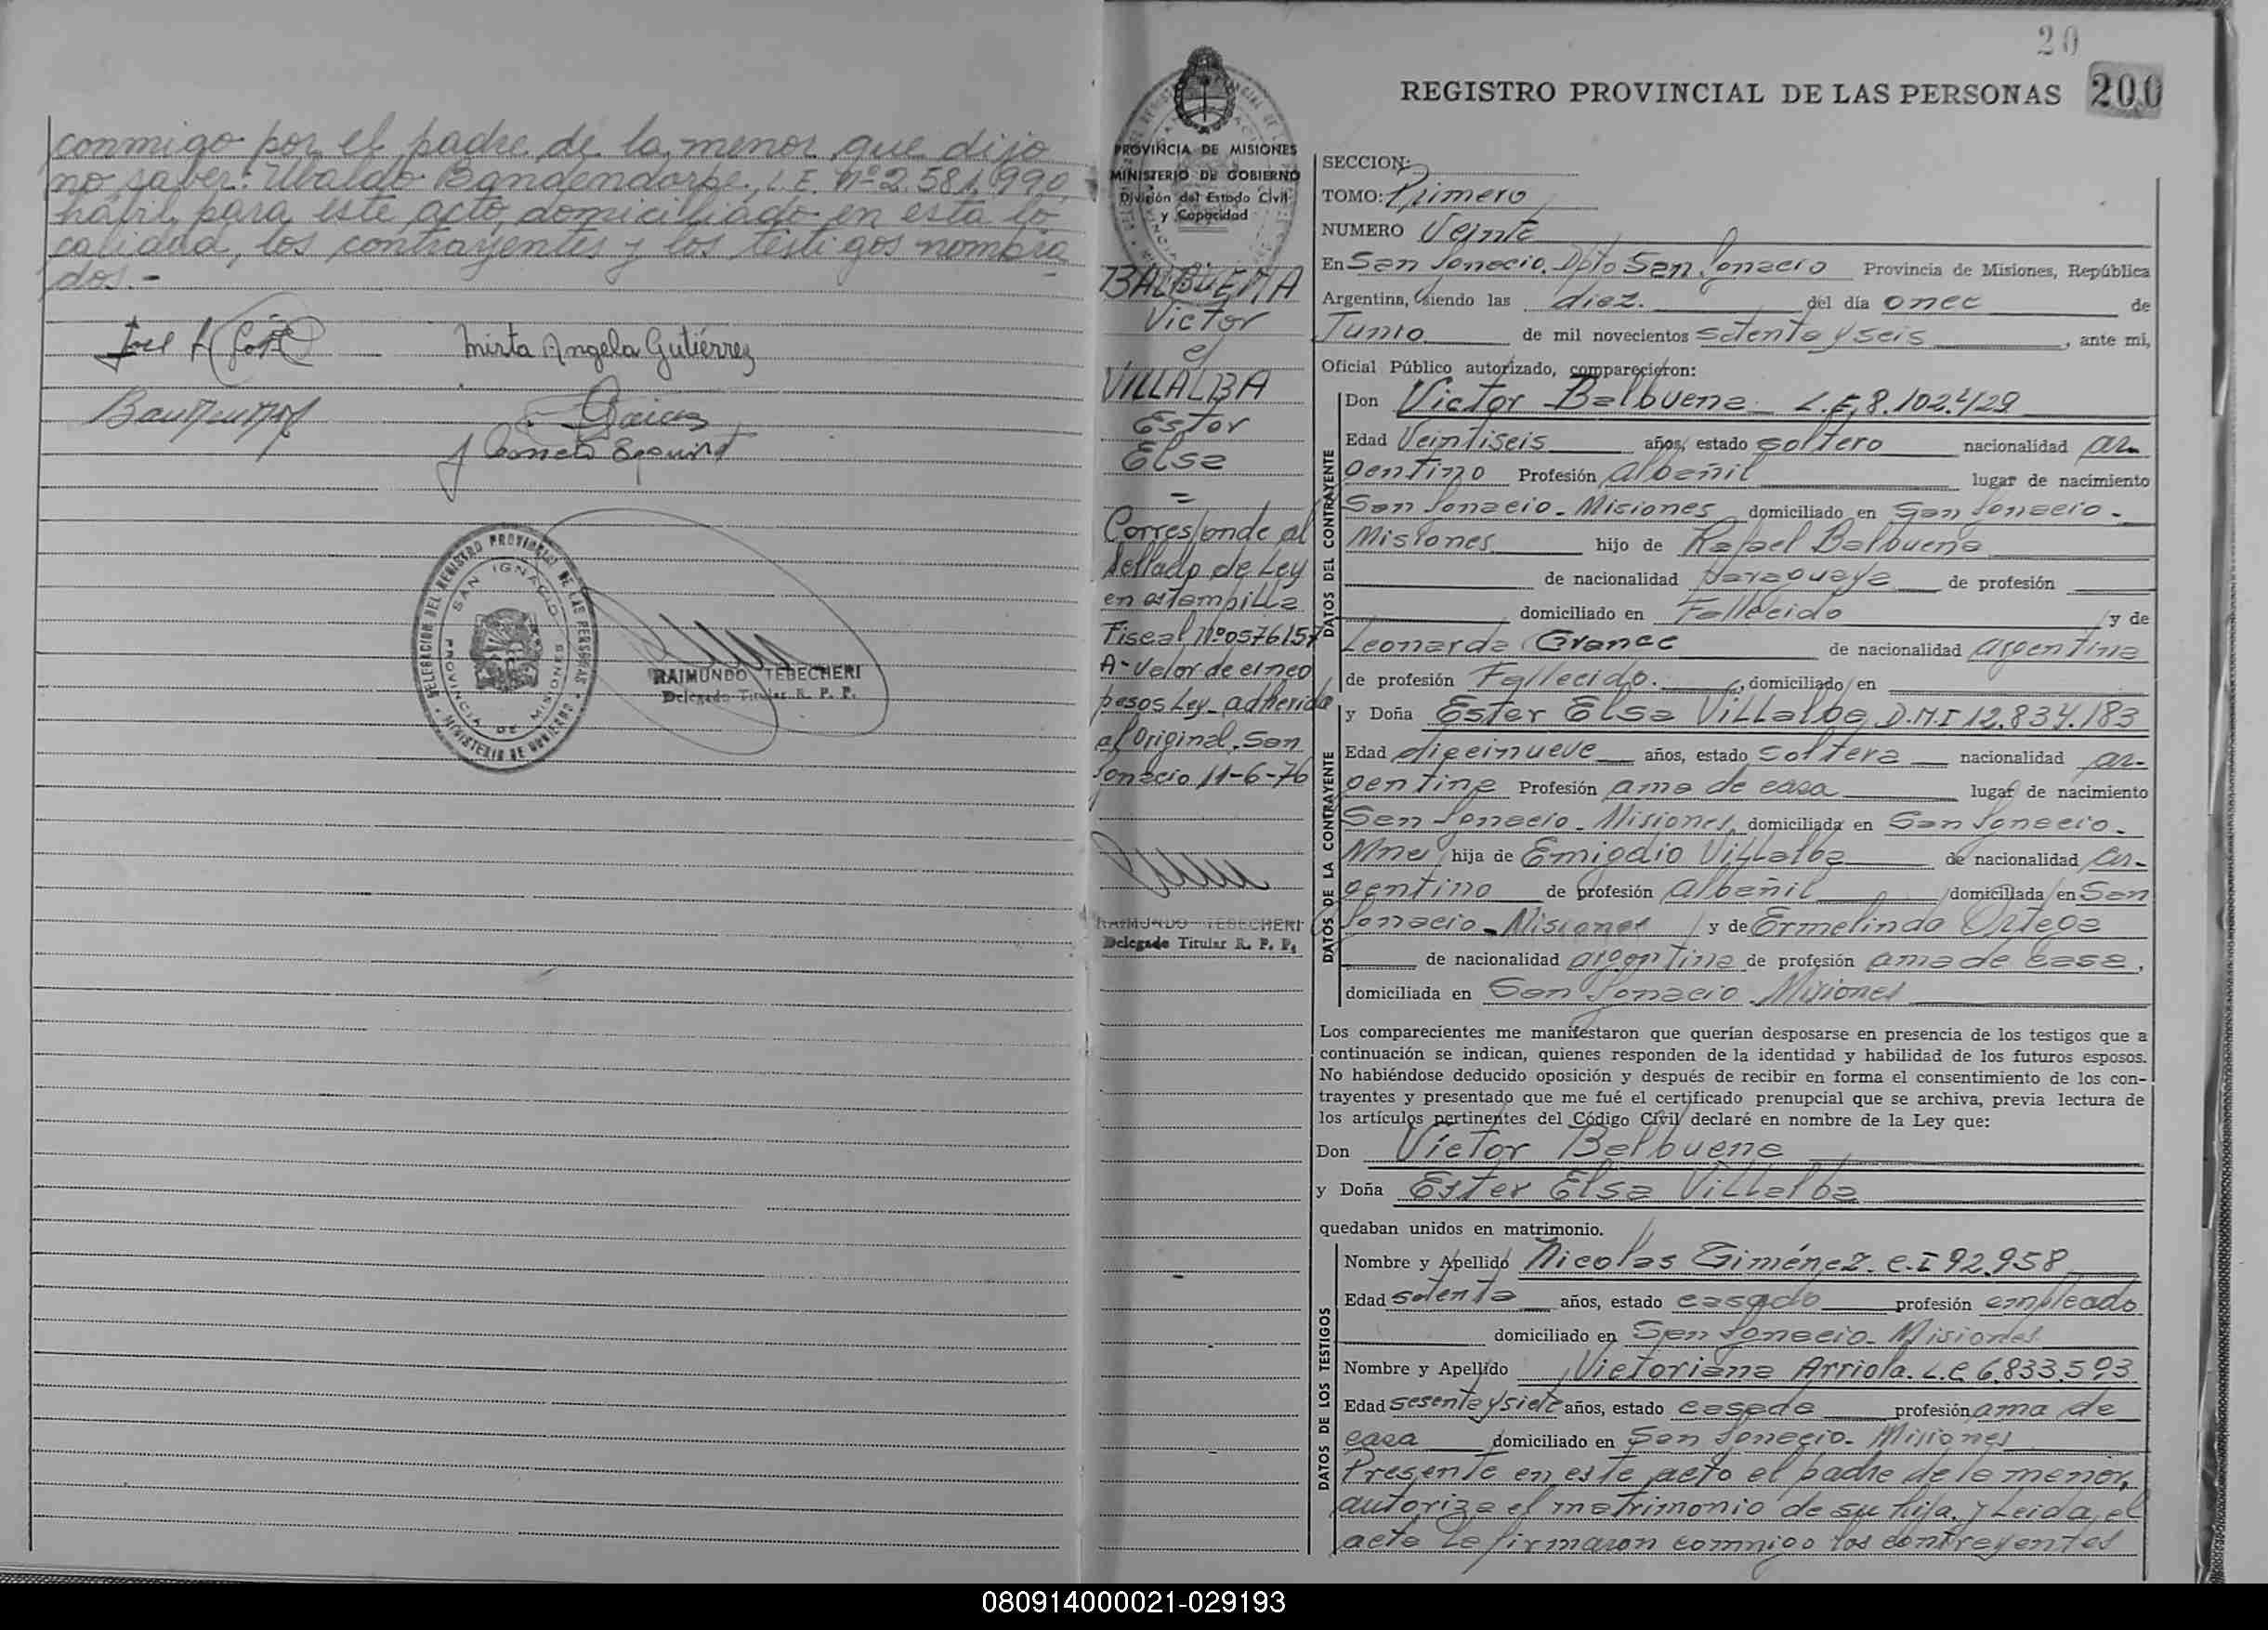 conmigo por el padre de la menor que dijo
no saber: Ubaldo Bandendorpe, L.E. Nº 2.581.990,
hábil para este acto, domiciliado en esta lo
calidad, los contrayentes y los testigos nombra
dos.-
Mirta Angela Gutiérrez
DELEGACION DEL REGISTRO PROVINCIAL DE LAS PERSONAS
MINISTERIO DE GOBIERNO
SAN IGNACIO
PROVINCIA DE MISIONES
RAIMUNDO TEBECHERI
Delegado Titular R. P. P.
20
REGISTRO PROVINCIAL DE LAS PERSONAS 200
PROVINCIA DE MISIONES
MINISTERIO DE GOBIERNO
División del Estado Civil
y Capacidad
BALBUENA
Victor
VILLALBA
Ester
Elsa
=
Corresponde al
Sellado de Ley
en estampilla
Fiscal Nº 0576157
A-Valor de cinco
pesos Ley-adherida
al Original. San
Ignacio 11-6-76
RAIMUNDO TEBECHERI
Delegado Titular R. P. P.
SECCION:
TOMO: Primero
NUMERO Veinte
En San Ignacio. Dpto San Ignacio Provincia de Misiones, República
Argentina, siendo las diez. del día once de
Junio de mil novecientos setenta y seis, ante mi,
Oficial Público autorizado, comparecieron:
DATOS DEL CONTRAYENTE
Don Victor Balbuena L.E, 8.102.429
Edad Veintiseis años, estado soltero nacionalidad ar-
gentino Profesión albañil lugar de nacimiento
San Ignacio - Misiones domiciliado en San Ignacio -
Misiones hijo de Rafael Balbuena
de nacionalidad Paraguaya de profesión
domiciliado en Fallecido y de
Leonarda de nacionalidad argentina
de profesión Fallecido. , domiciliado en
DATOS DE LA CONTRAYENTE
y Doña Ester Elsa Villalba D.N.I 12.834.183
Edad diecinueve años, estado soltera nacionalidad ar-
gentina Profesión ama de casa lugar de nacimiento
San Ignacio - Misiones, domiciliada en San Ignacio -
Mnes hija de Emigdio Villalba de nacionalidad ar-
gentino de profesión albañil domiciliada en San
Ignacio - Misiones y de Ermelinda Ortega
de nacionalidad argentina de profesión ama de casa,
domiciliada en San Ignacio Misiones
Los comparecientes me manifestaron que querían desposarse en presencia de los testigos que a
continuación se indican, quienes responden de la identidad y habilidad de los futuros esposos.
No habiéndose deducido oposición y después de recibir en forma el consentimiento de los con-
trayentes y presentado que me fué el certificado prenupcial que se archiva, previa lectura de
los artículos pertinentes del Código Civil declaré en nombre de la Ley que:
Don Victor Balbuena
y Doña Ester Elsa Villalba
quedaban unidos en matrimonio.
DATOS DE LOS TESTIGOS
Nombre y Apellido Nicolas Giménez. C.I 92.958
Edad setenta años, estado casado profesión empleado
domiciliado en San Ignacio - Misiones
Nombre y Apellido Victoriana Arriola. L.C 6.833.593
Edad sesenta y siete años, estado casada profesión ama de
casa domiciliado en San Ignacio - Misiones
Presente en este acto el padre de la menor,
autoriza el matrimonio de su hija, y Leida el
acta la firmaron conmigo los contrayentes
080914000021-029193